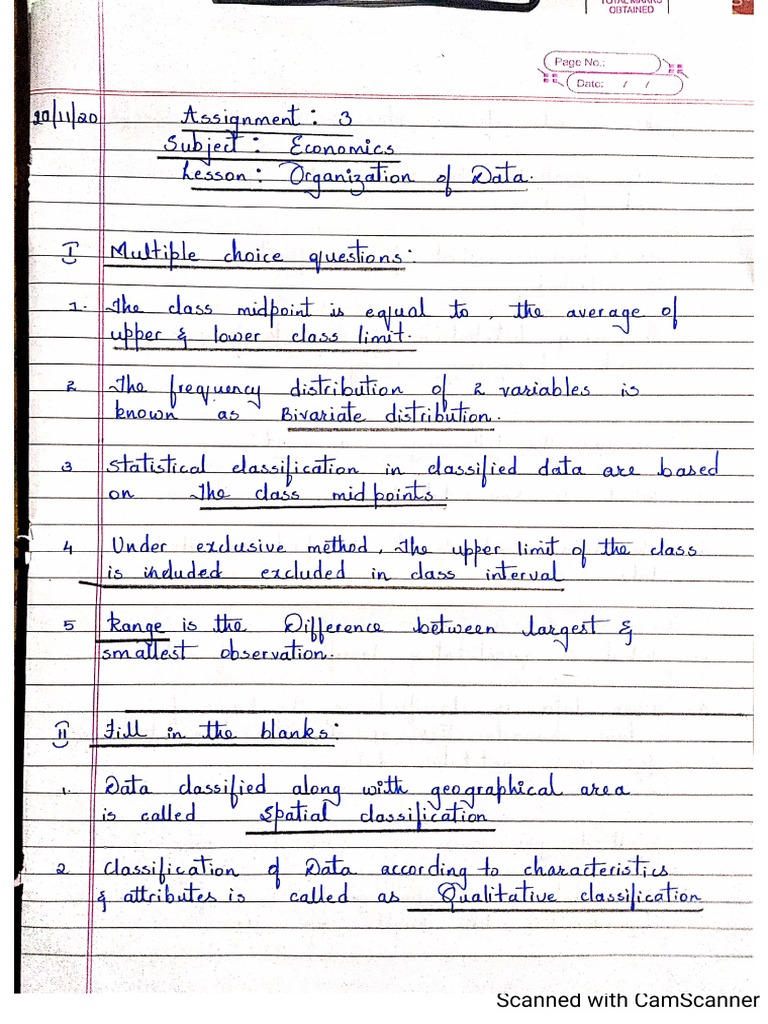 TOTAL MARKS
OBTAINED
Page No.:
Date: / /
20/11/20 Assignment : 3
Subject : Economics
Lesson : Organization of Data.
I Multiple choice questions:
1. The class midpoint is equal to, the average of
upper & lower class limit.
2 The frequency distribution of 2 variables is
known as Bivariate distribution.
3 Statistical classification in classified data are based
on The class midpoints.
4 Under exclusive method, The upper limit of the class
is included excluded in class interval
5 Range is the Difference between largest &
smallest observation.
II Fill in the blanks:
1. Data classified along with geographical area
is called Spatial classification
2 Classification of Data according to characteristics
& attributes is called as Qualitative classification
Scanned with CamScanner